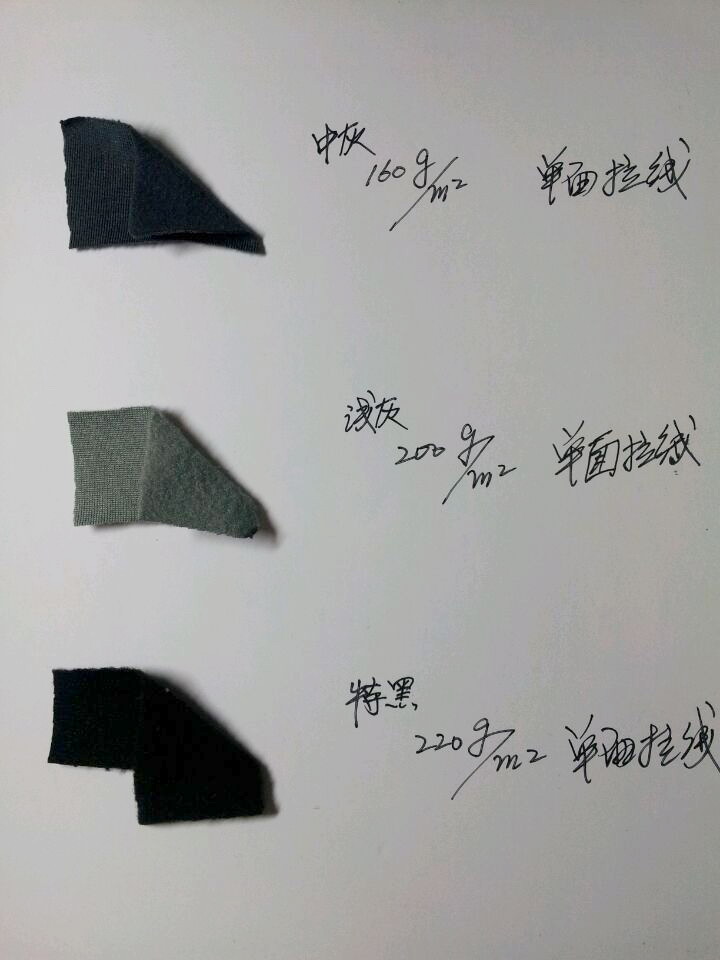 中灰
160g/m2 单面拉绒
浅灰
200g/m2 单面拉绒
特黑
220g/m2 单面拉绒